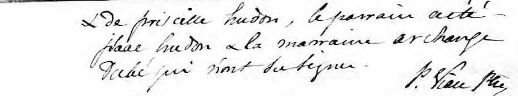 & de priscille hudon, le parrain a été
hudon & la marraine archange
Dubé qui n'ont su signer.
P. Viau Ptre